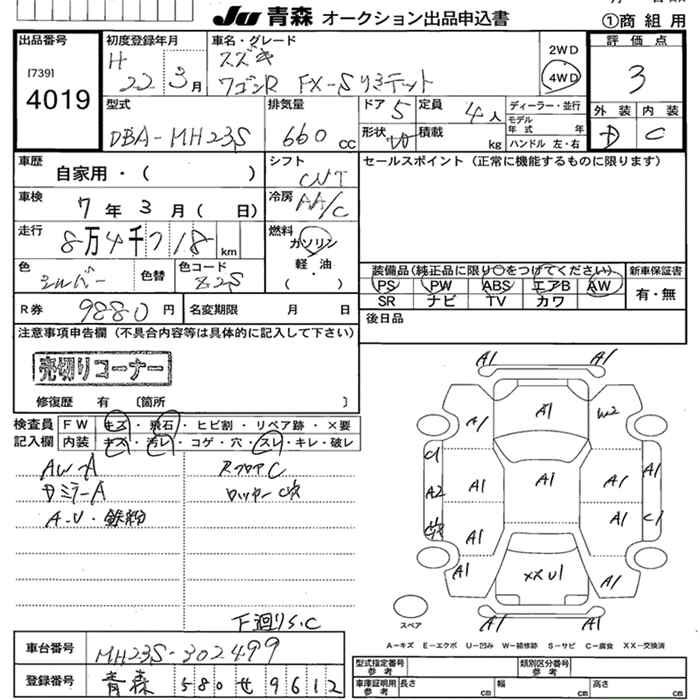 Ju 青森 オークション出品申込書
①商組用
出品番号 初度登録年月 車名・グレード 評価点
[739] 4019
H 22 3月
スズキ
ワゴンR FX-Sリミテッド
2WD
4WD
3
型式 排気量 ドア 5 定員 4人 ディーラー・並行 外装 内装
DBA-MH23S 660cc
形状 積載 kg
モデル年式 年
ハンドル 左・右
D C
車歴 自家用・( )
シフト CVT
セールスポイント(正常に機能するものに限ります)
車検 7年 3月( 日)
冷房 AA/C
走行 8万4千718km
燃料 ガソリン
軽・油
( )
色 シルバー 色替 色コード Z2S
装備品(純正品に限り○をつけてください) 新車保証書
PS PW ABS エアB AW 有・無
SR ナビ TV カワ
R券 9880円 名変期限 月 日
後日品
注意事項申告欄(不具合内容等は具体的に記入して下さい)
売切りコーナー
修復歴 有 〔箇所 〕
検査員 FW キズ・飛石・ヒビ割・リペア跡・×要
記入欄 内装 キズ・汚レ・コゲ・穴・スレ・キレ・破レ
AW-A RフロアC
Dミラ-A ロッカーC穴
A・U・鉄粉
下廻りS・C
A1 A1
A1 A1 W2
C1 A1
A2 A1 A1 A1
A1 A1 C1
A1 XXU1 A1
A1 A1
スペア
A=キズ E=エクボ U=凹み W=補修跡 S=サビ C=腐食 XX=交換済
車台番号 MH23S-302499
登録番号 青森 580せ9612
型式指定番号 参考 類別区分番号 参考
車庫証明用 参考 長さ cm 幅 cm 高さ cm